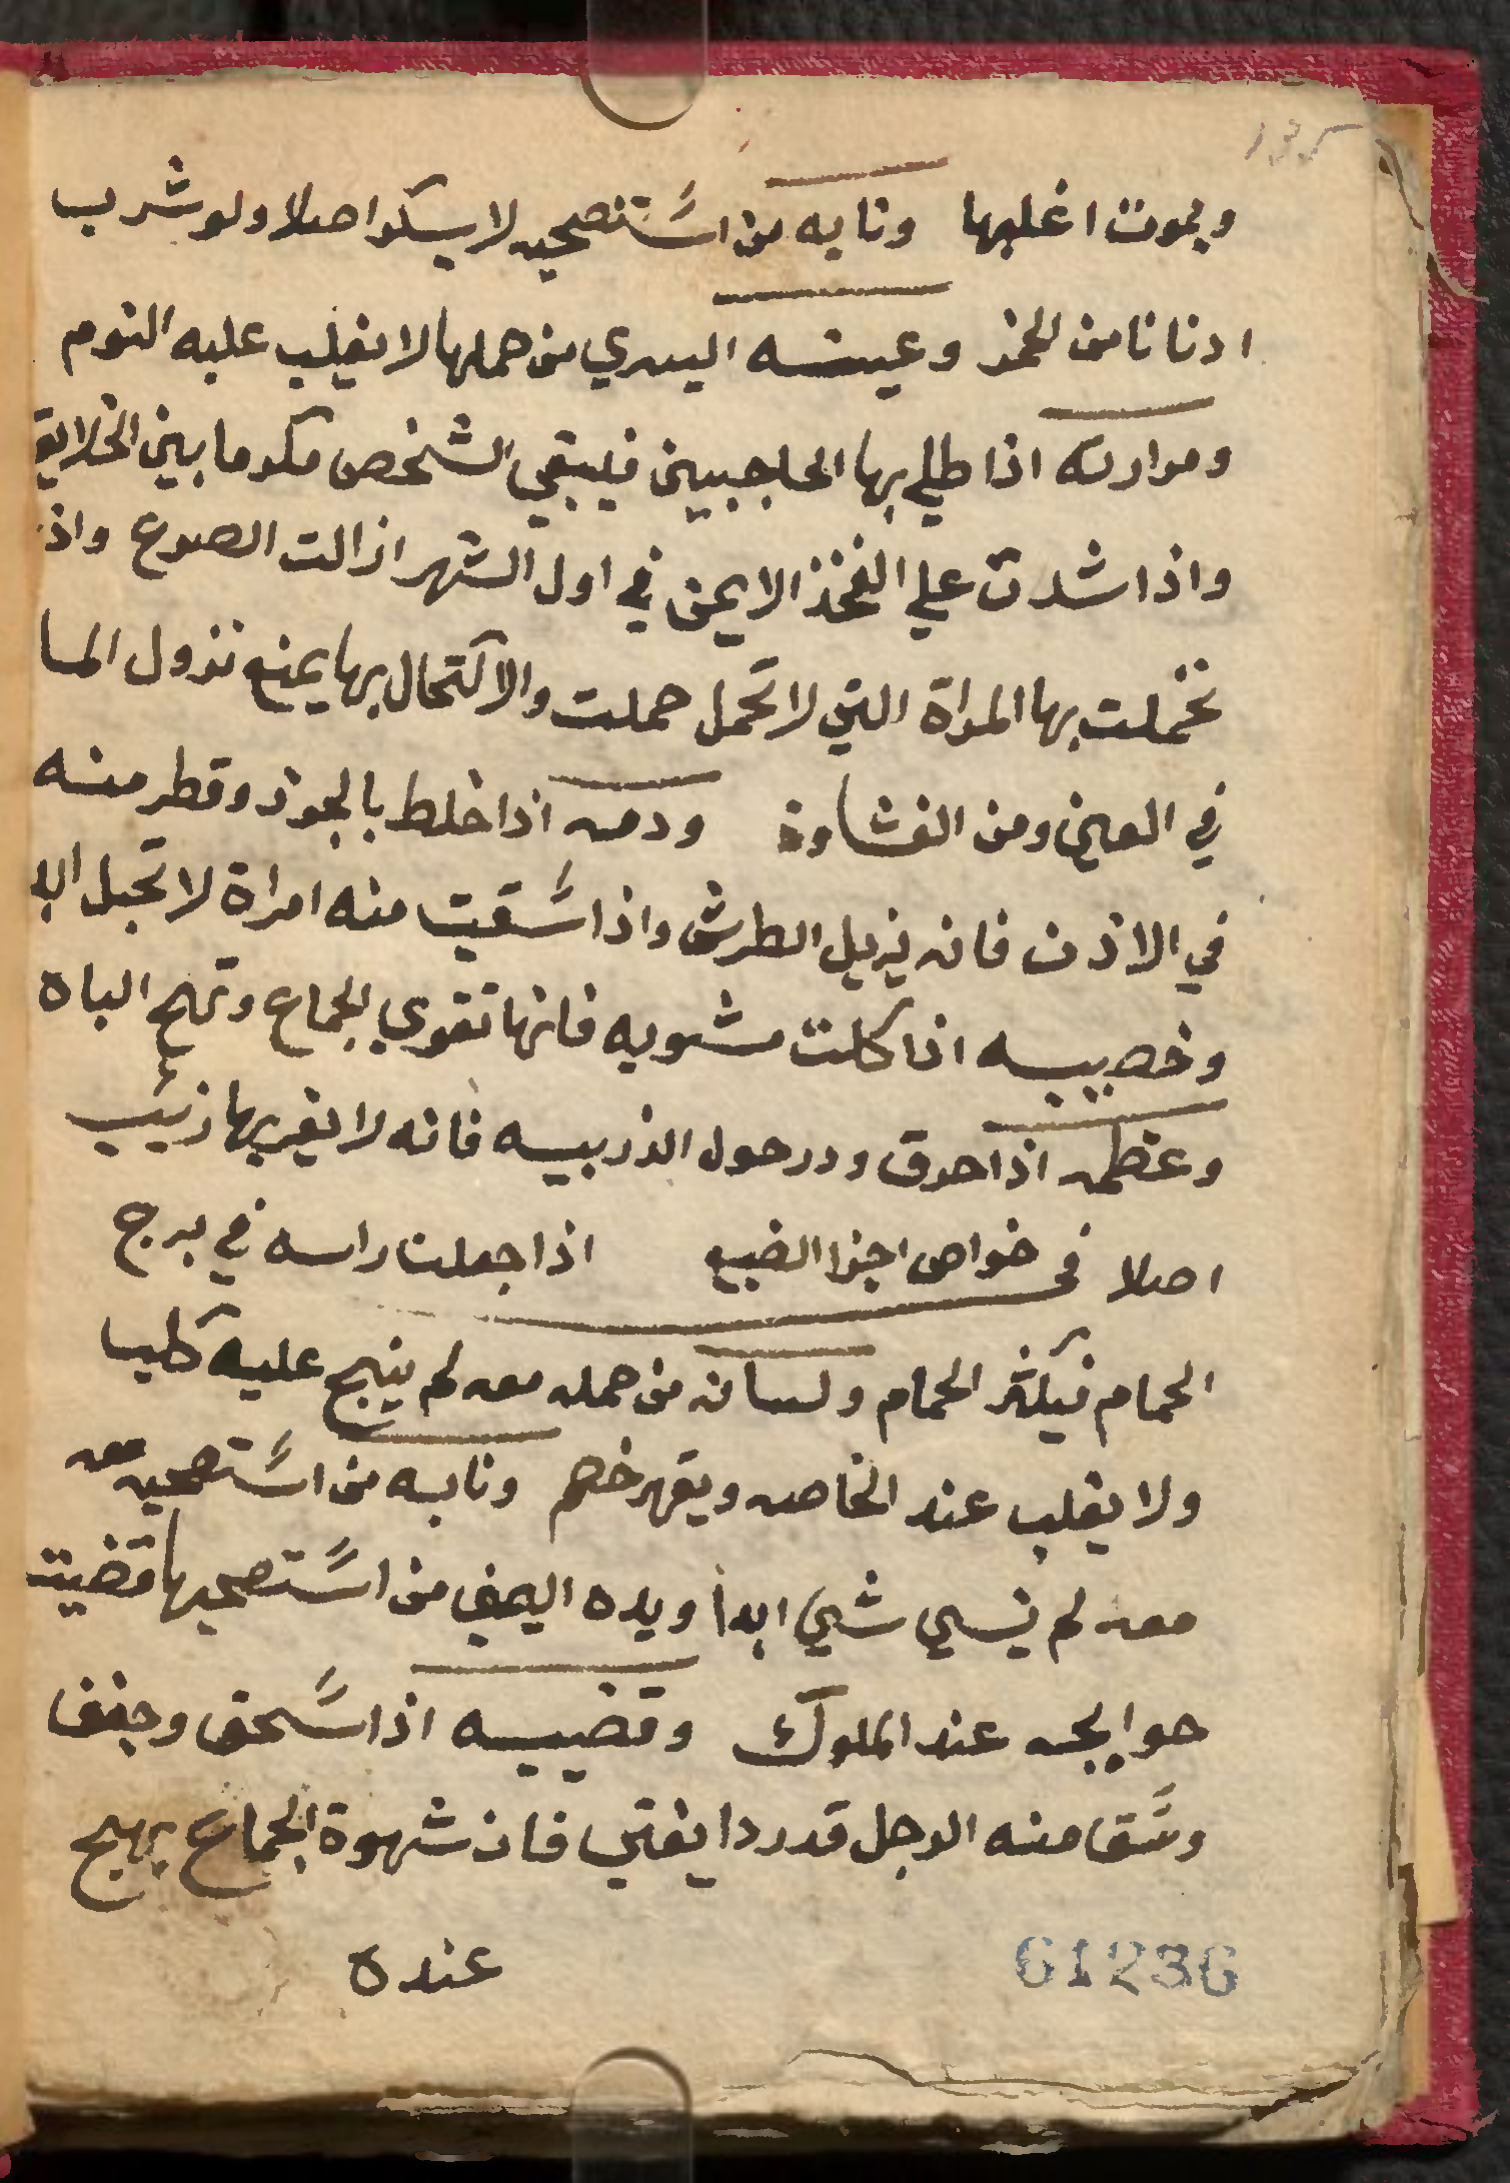 ١٣٥
ويموت اغلبها ونابه من استصحبه لا يسكر اصلا ولو شرب
ادنانا من الخمر وعينه اليسري من حملها لا يغلب عليه النوم
ومرارته اذا طلي بها الحاجبين فيبقي الشخص مكرما بين الخلايق
واذا شدت علي الفخذ الايمن في اول الشهر ازالت الصرع واذا
تحملت بها المراة التي لا تحمل حملت والاكتحال بها يمنع نزول الما
في العين ومن الغشاوة ودمه اذا خلط بالجوز وقطر منه
في الاذن فانه يزيل الطرش واذا سقيت منه امراة لا تحبل ابدا
وخصيبه اذا كلت مشويه فانها تقوي الجماع وتهيج الباه
وعظمه اذا حرق ودر حول الزريبه فانه لا يقربها زئيب
اصلا في خواص اجزا الضبع اذا جعلت راسه في برج
الحمام فيكثر الحمام ولسانه من حمله معه لم ينبح عليه كلبا
ولا يغلب عند الخاصه ويقهر خصم ونابه من استصحبه معه
معه لم ينسي شي ابدا ويده اليمني من استصحبها قضيت
حوايجه عند الملوك وقضيبه اذا سحق وجفف
وسقا منه الرجل قدر دانقتي فان شهوة الجماع يهيج
عنده
61236